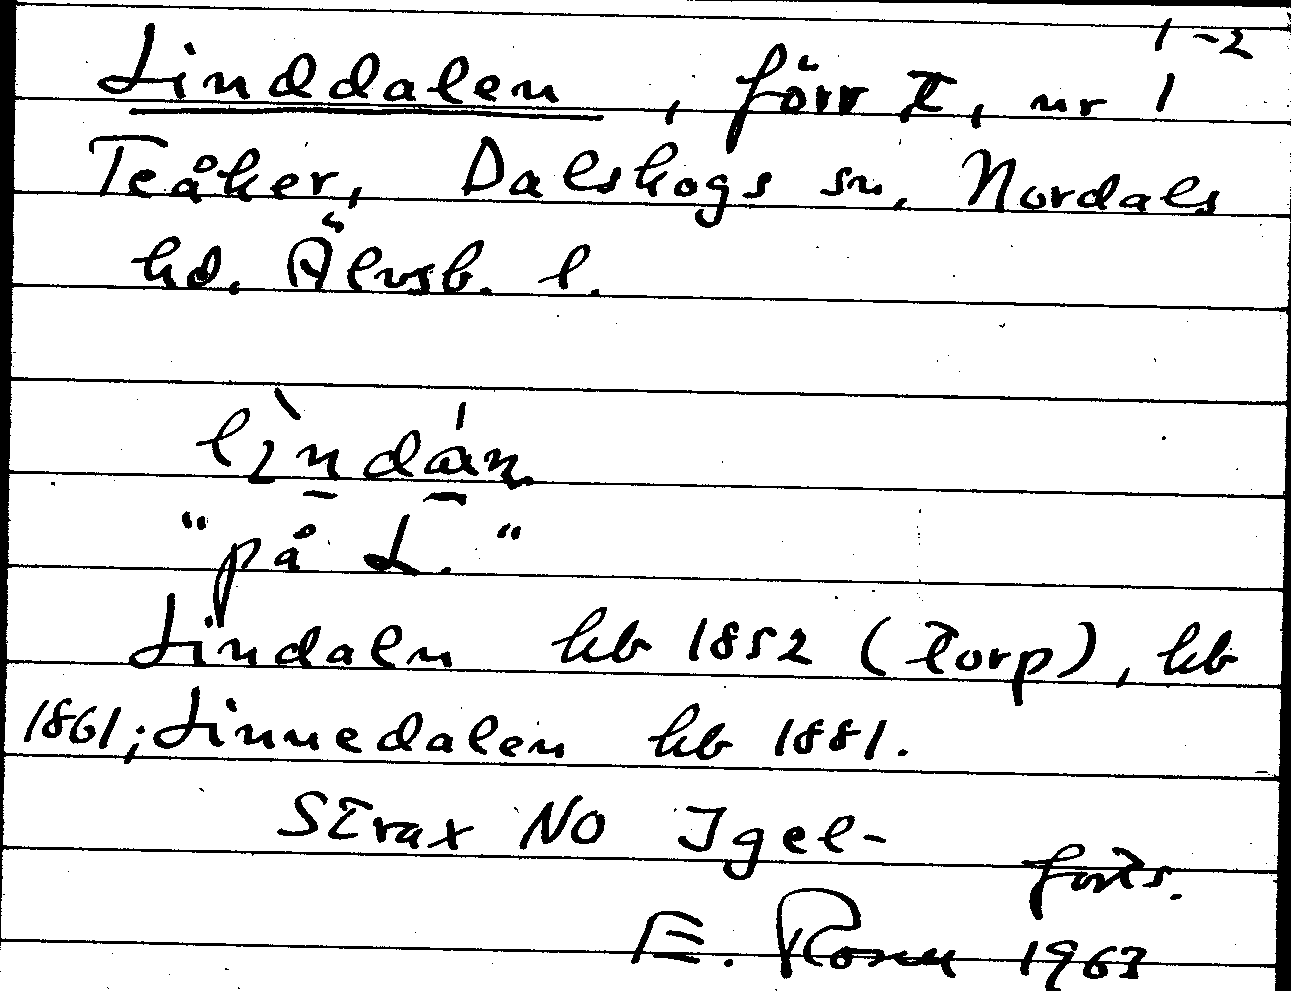 1-2
Linddalen, förr t, nr 1
Teåker, Dalskogs sn, Nordals
hd. Älvsb. l.
lìndán
"på L."
Lindaln hb 1852 (torp), hb
1861; Linnedalen hb 1881.
Strax NO Igel-
forts.
E. Rosell 1963